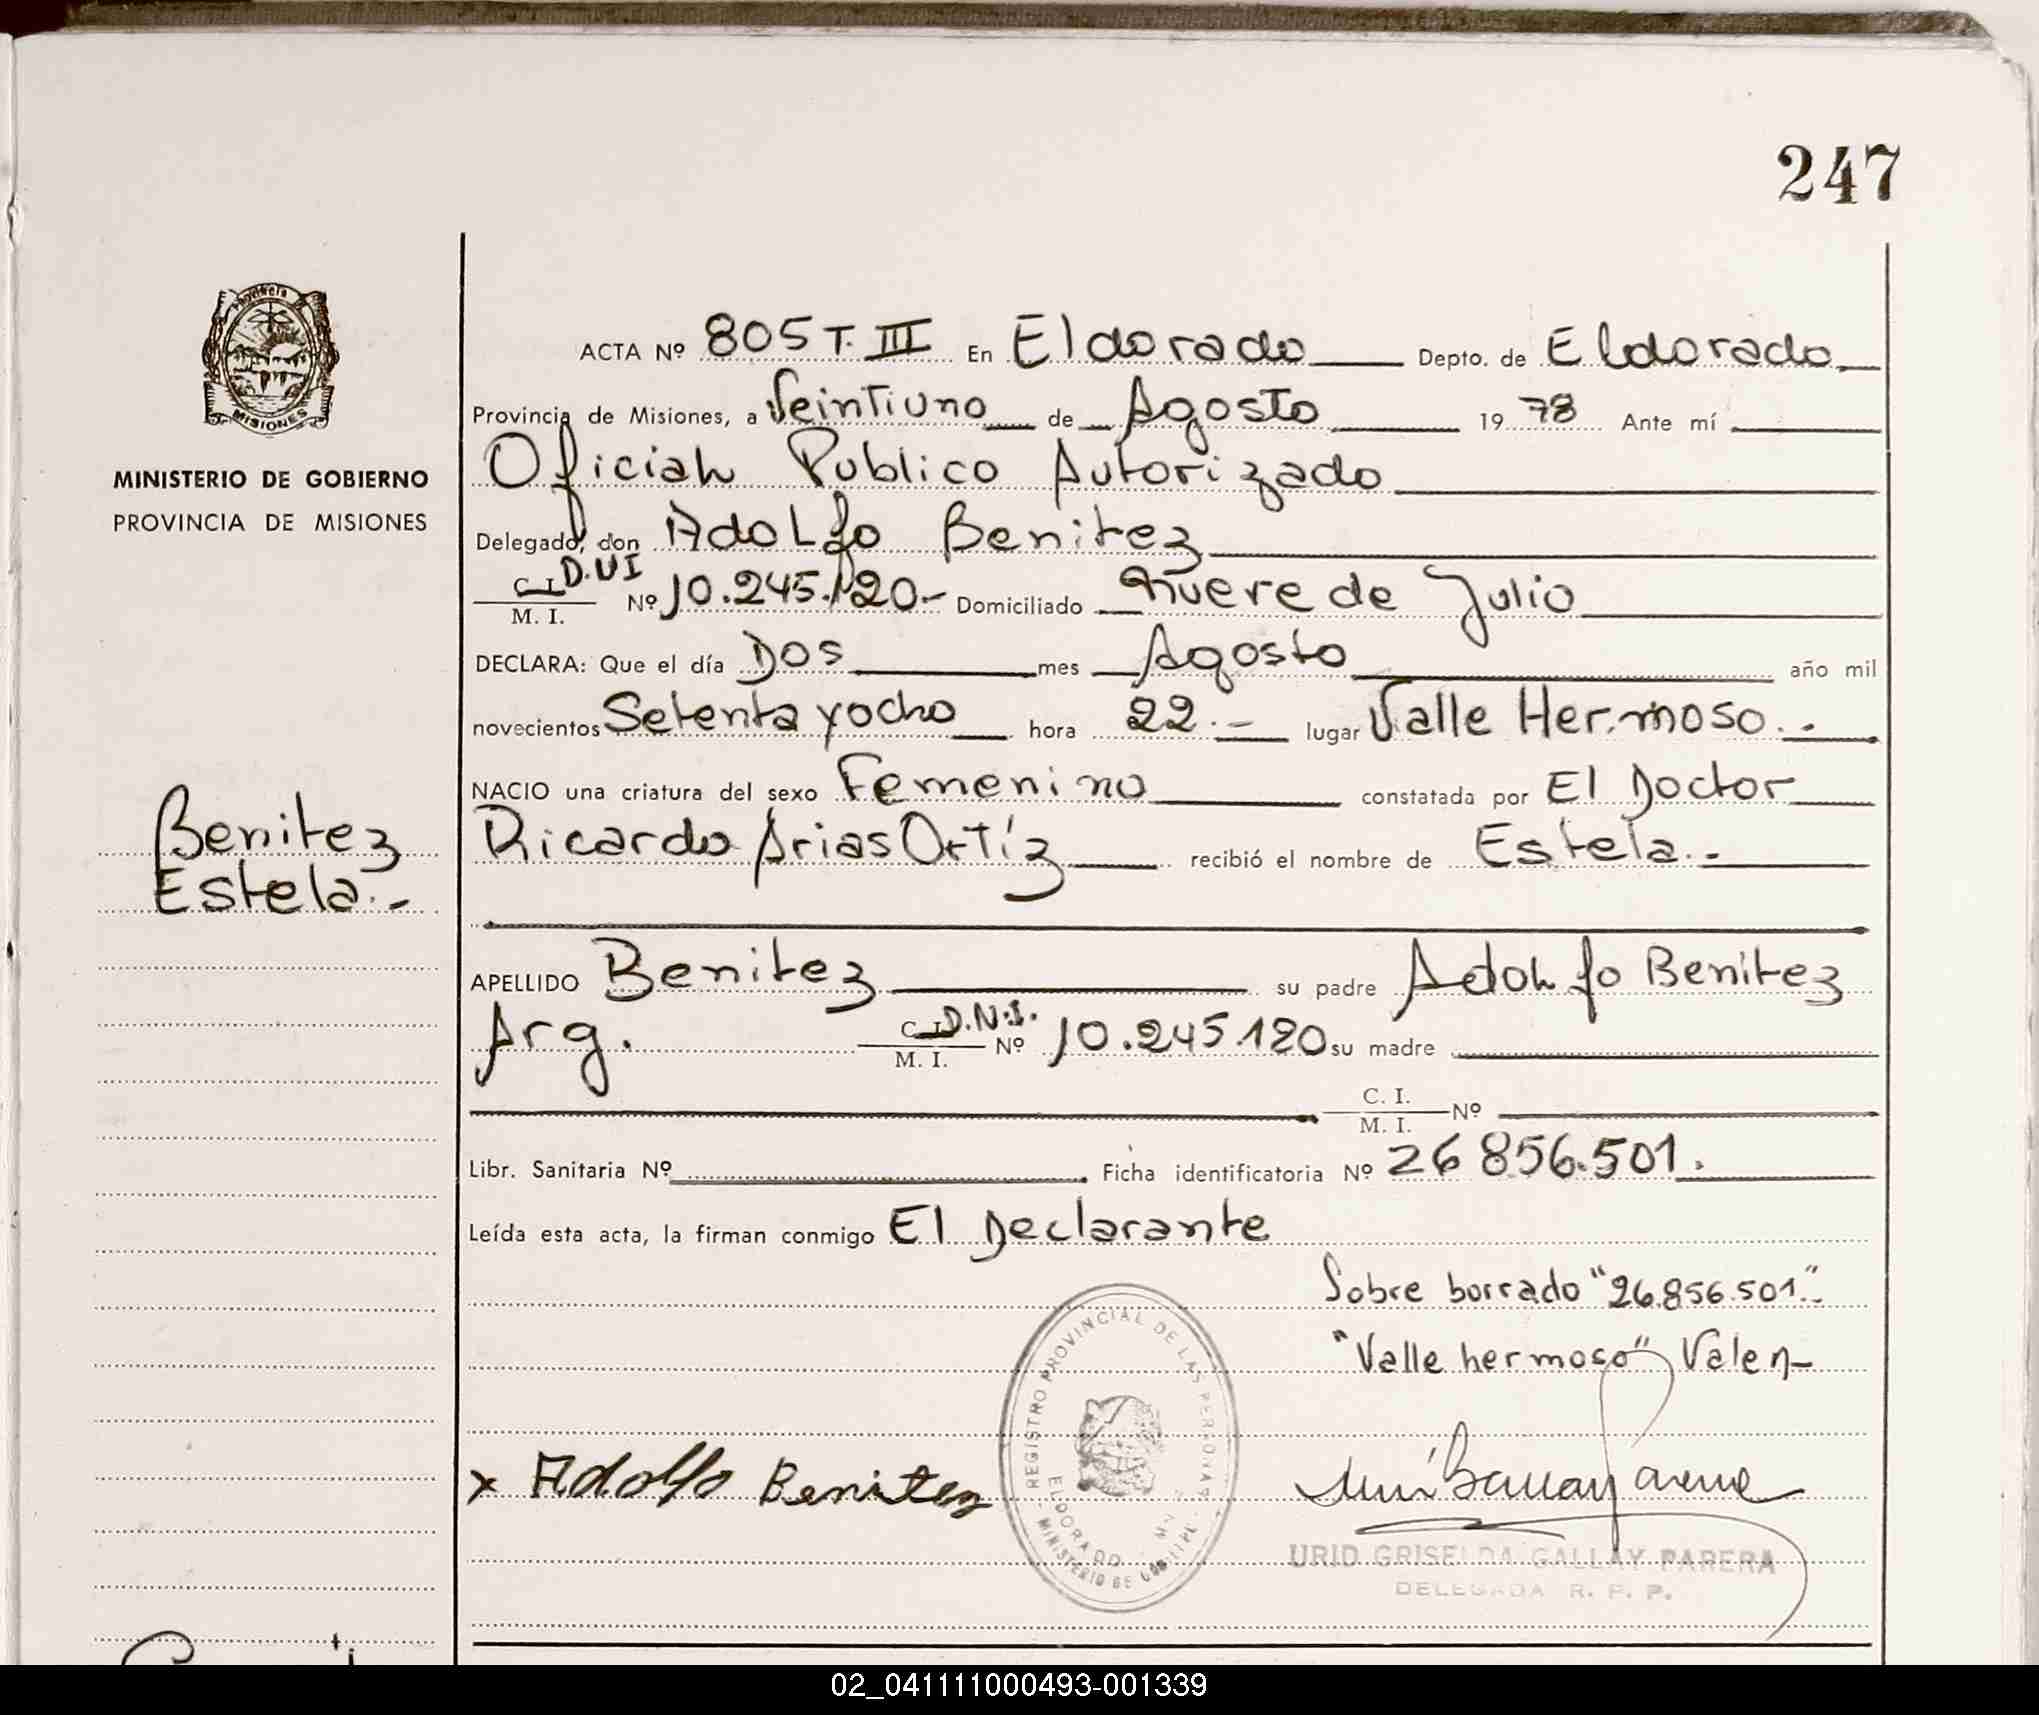 247
Provincia
MISIONES
MINISTERIO DE GOBIERNO
PROVINCIA DE MISIONES
ACTA Nº 805 T. III En Eldorado Depto. de Eldorado
Provincia de Misiones, a Veintiuno de Agosto 1978 Ante mí
Oficial Publico Autorizado
Delegado, don Adolfo Benitez
C. I. D.U I
M. I. Nº 10.245.120.- Domiciliado nueve de Julio
DECLARA: Que el día Dos mes Agosto año mil
novecientos Setenta y ocho hora 22.- lugar Valle Hermoso.-
NACIO una criatura del sexo Femenino constatada por El Doctor
Ricardo Arias Ortíz recibió el nombre de Estela.-
Benitez
Estela.-
APELLIDO Benitez su padre Adolfo Benitez
Arg. C. I. D.N.I. M. I. Nº 10.245.120 su madre
C. I. M. I. Nº
Libr. Sanitaria Nº Ficha identificatoria Nº 26 856.501.
Leída esta acta, la firman conmigo El Declarante
Sobre borrado "26.856.501".-
"Valle hermoso" Valen-
x Adolfo Benitez
REGISTRO PROVINCIAL DE LAS PERSONAS
ELDORADO
MINISTERIO DE
URID GRISELDA GALLAY PARERA
DELEGADA R. P. P.
02_041111000493-001339